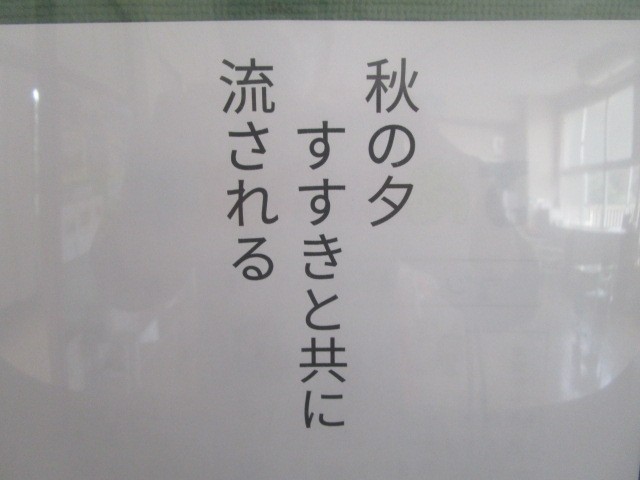 秋の夕
すすきと共に
流される